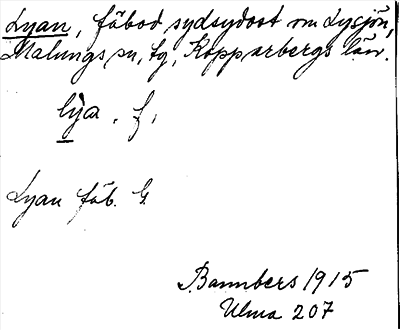 Lyan, fäbod sydsydost om Lysjön,
Malungs sn, tg, Kopparbergs län.
lya. f.
Lyan fäb. G.
Bannbers 1915
Ulma 207